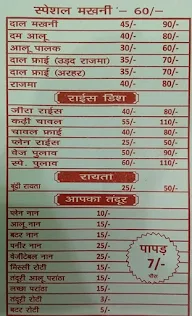 स्पेशल मखनी - 60/-
दाल मखनी 45/- 90/-
दम आलू 40/- 80/-
आलू पालक 30/- 60/-
दाल फ्राई (उड़द राजमा) 35/- 70/-
दाल फ्राई (अरहर) 35/- 70/-
राजमा 40/- 80/-
राईस डिश
जीरा राईस 40/- 80/-
कढ़ी चावल 55/- 110/-
चावल फ्राई 40/- 80/-
प्लेन राईस 25/- 50/-
वेज पुलाव 50/- 90/-
स्पे. पुलाव 60/- 110/-
रायता
बूंदी रायता 25/- 50/-
आपका तंदूर
प्लेन नान 10/-
आलू नान 15/-
बटर नान 15/-
पनीर नान 25/-
वेजीटेबल नान 25/-
मिस्सी रोटी 15/-
तंदूरी आलू परांठा 15/-
लच्छा परांठा 15/-
तंदूरी रोटी 3/-
बटर रोटी 5/-
पापड़
7/-